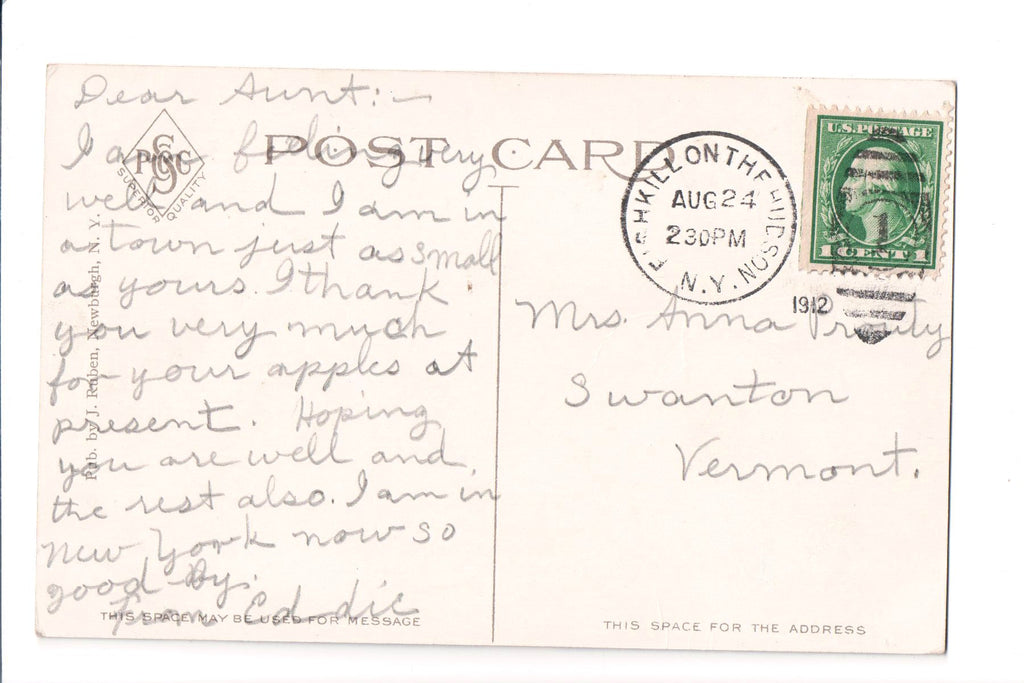 Dear Aunt:-
I am feeling very
well and I am in
a town just as small
as yours. I thank
you very much
for your apples at
present. Hoping
you are well and
the rest also. I am in
New York now so
good-by.
from Eddie
POST CARD
PSCC
S
SUPERIOR QUALITY
Pub. by J. Ruben, Newburgh, N. Y.
THIS SPACE MAY BE USED FOR MESSAGE
FISHKILL ON THE HUDSON
AUG 24
2 30PM
N.Y.
1912
U.S. POSTAGE
1 CENT 1
1
Mrs. Anna Prouty
Swanton
Vermont.
THIS SPACE FOR THE ADDRESS